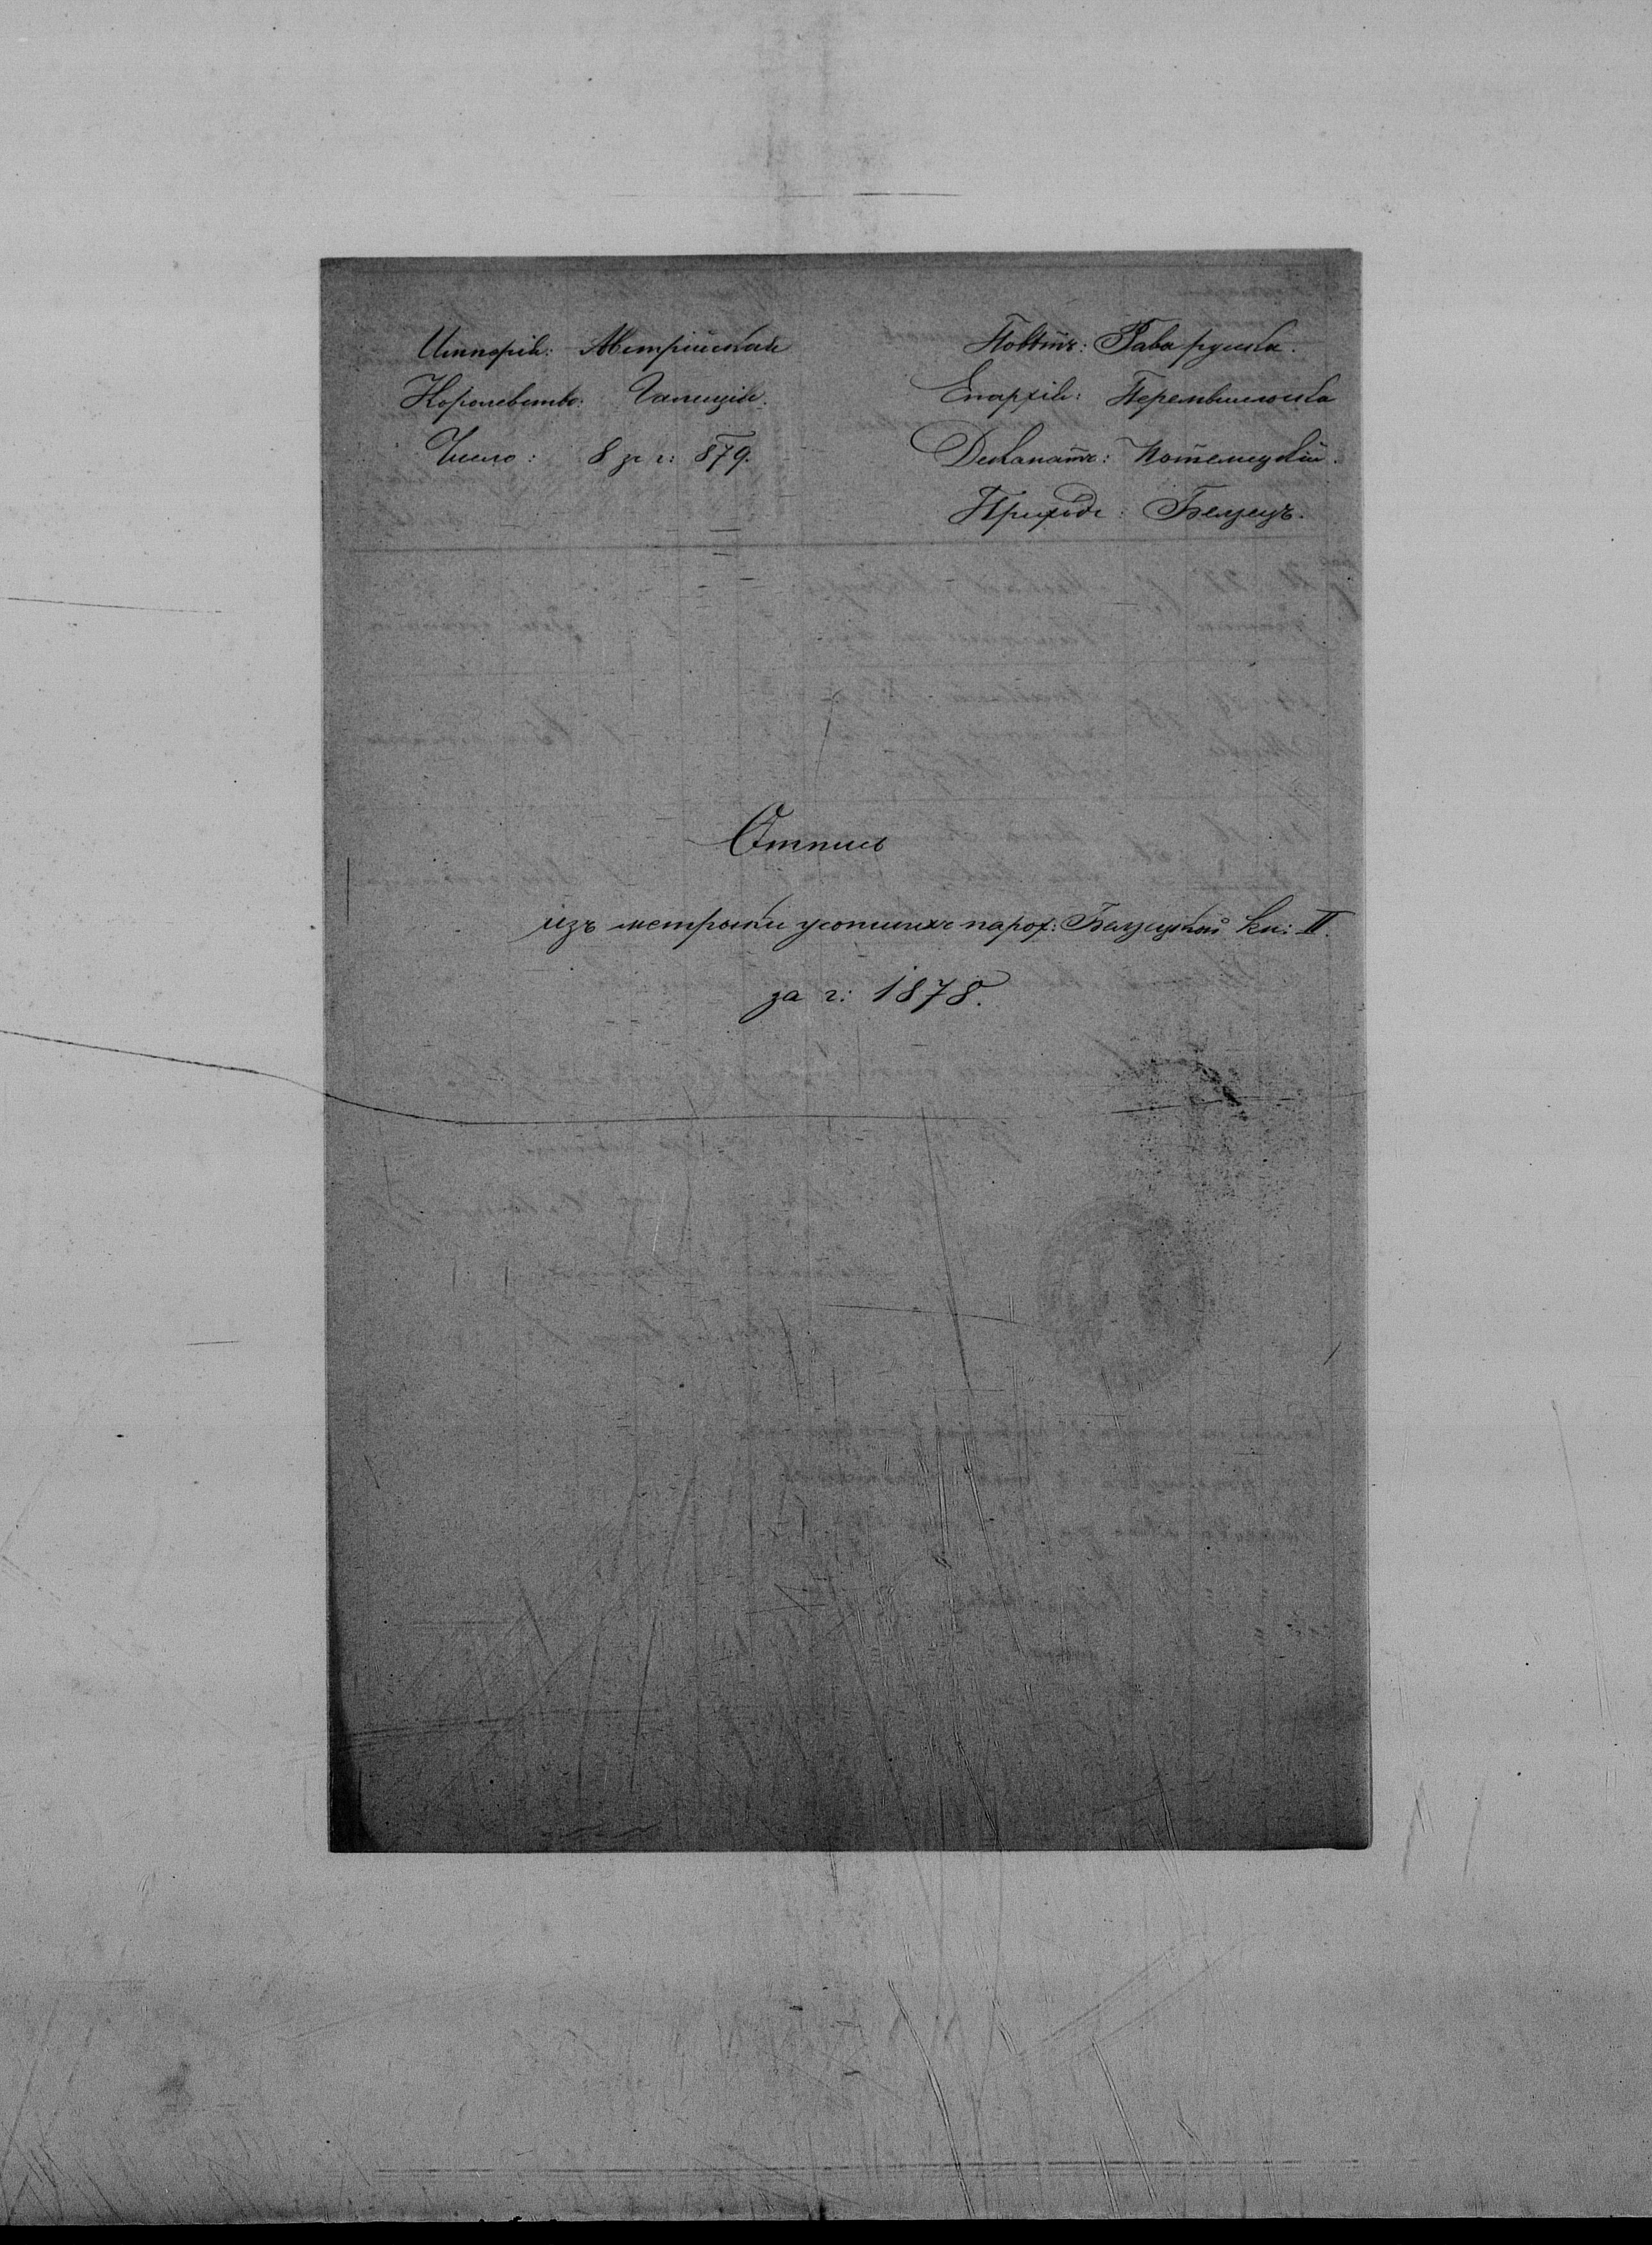 Имперія: Австрійская
Королевство: Галиція.
Число: 8 зъ г: 879.
Повѣтъ: Рава руска.
Епархія: Перемышльска
Деканатъ: Потелицкій.
Приходъ: Белзецъ.
Отпись
изъ метрыки усопшихъ парох: Белзецкой кн: II.
за г: 1878.